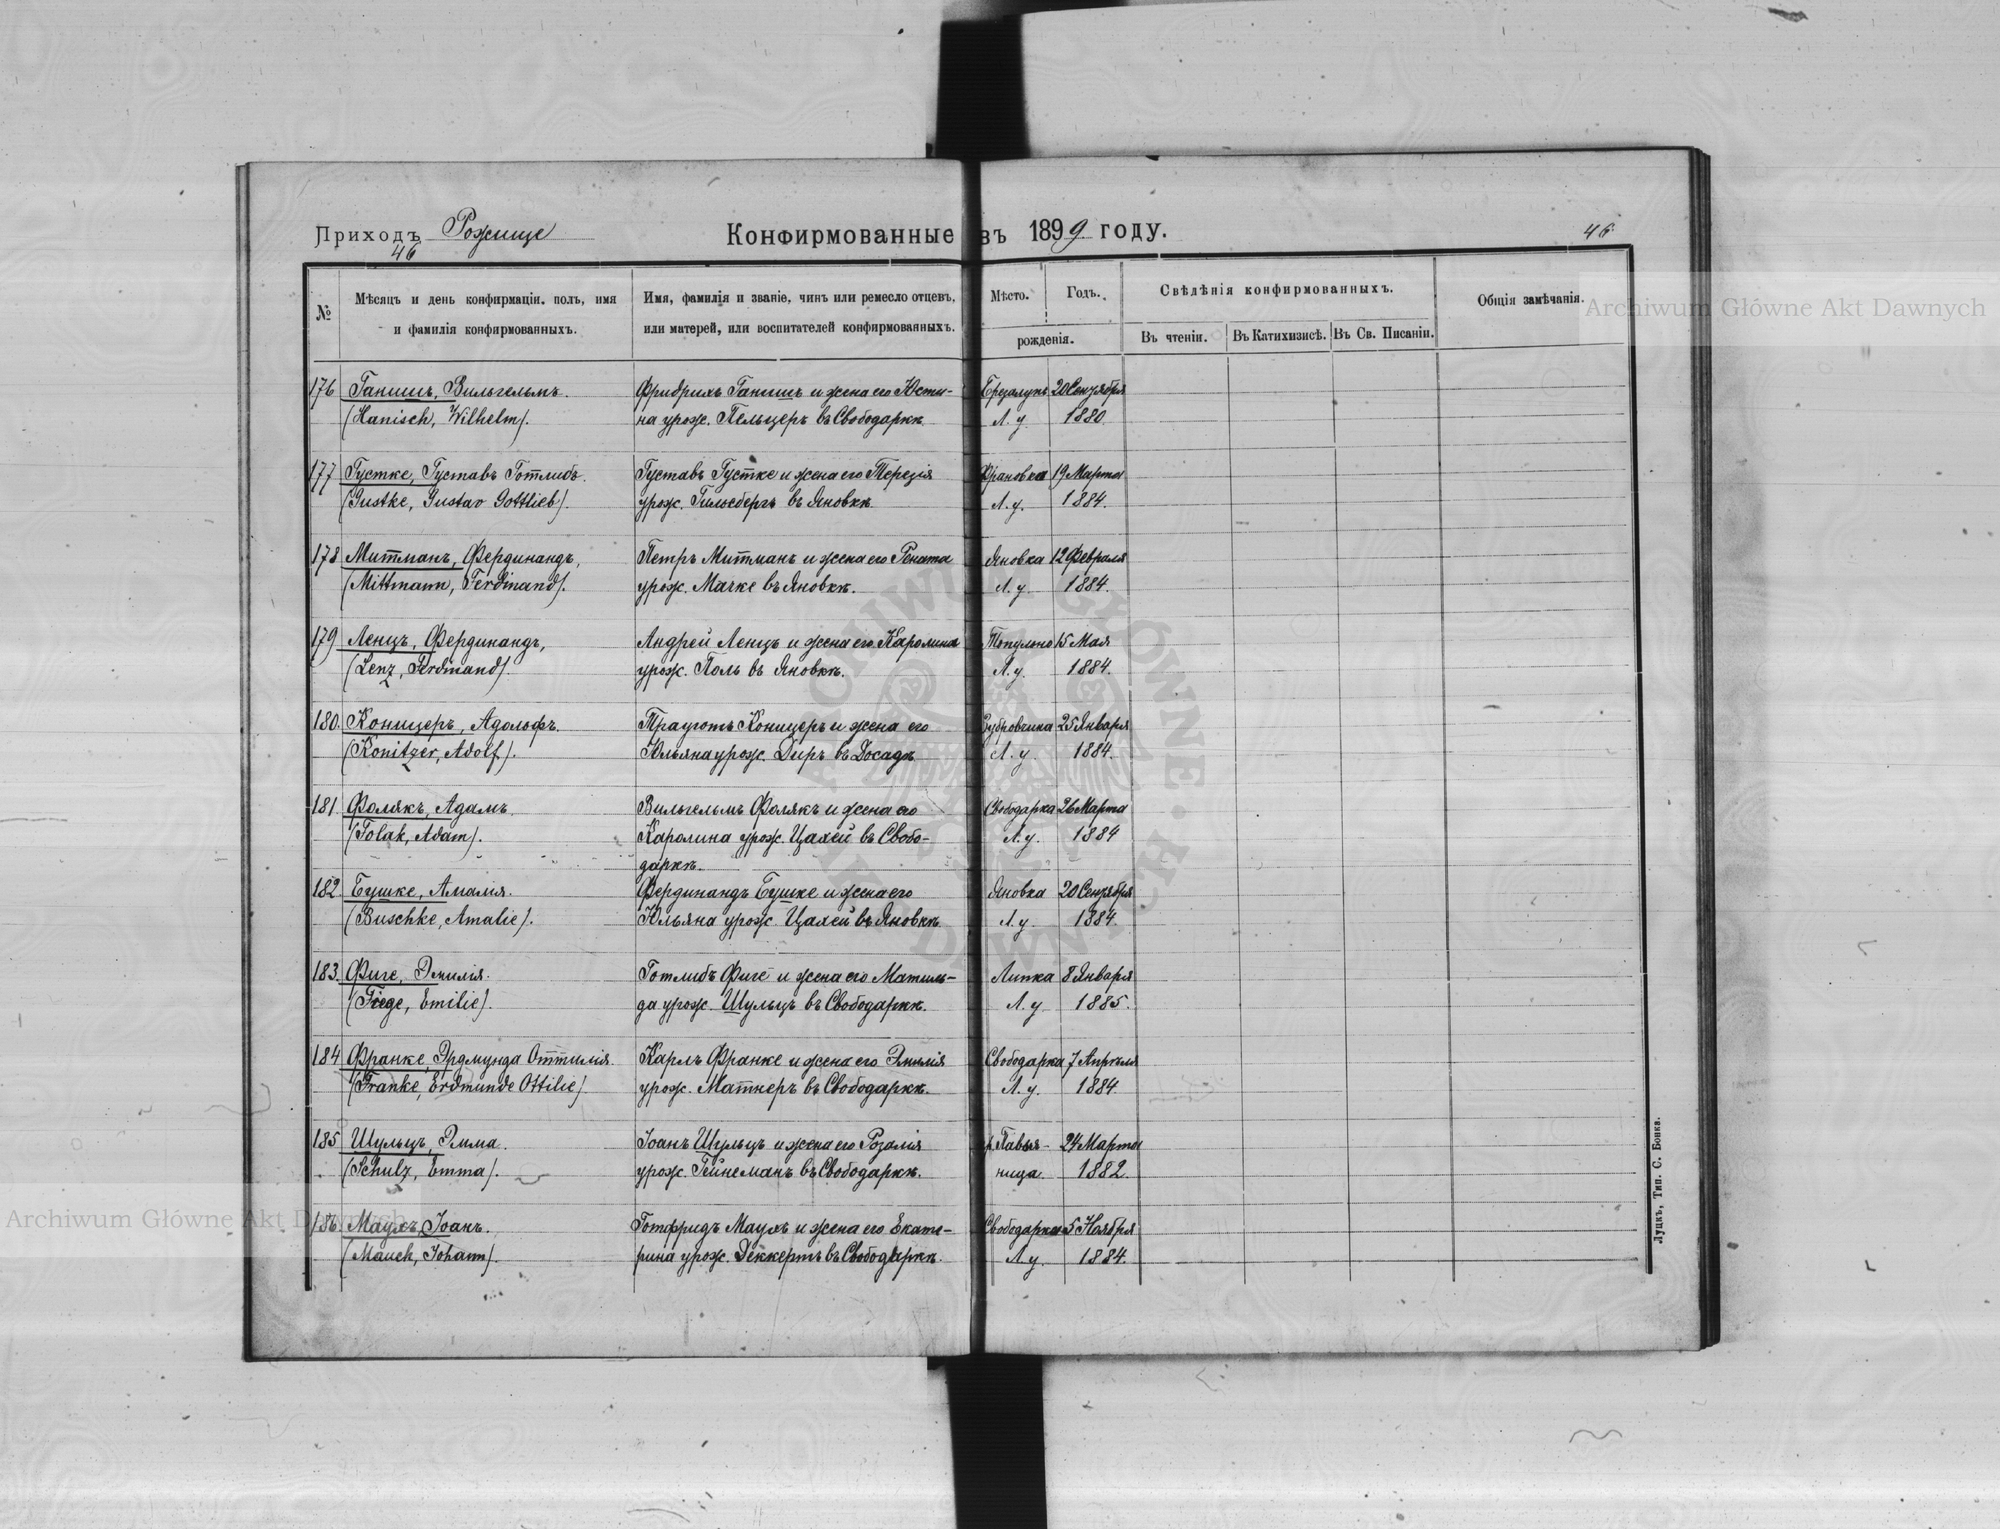 Приходъ Рожище
46
Конфирмованные въ 1899 году.
46
№
Мѣсяцъ и день конфирмаціи, полъ, имя
и фамилія конфирмованныхъ.
Имя, фамилія и званіе, чинъ или ремесло отцевъ,
или матерей, или воспитателей конфирмованныхъ.
Мѣсто.
Годъ.
рожденія.
Свѣдѣнія конфирмованныхъ.
Въ чтеніи.
Въ Катихизисѣ.
Въ Св. Писаніи.
Общія замѣчанія.
176 Ганишъ, Вильгельмъ. Фридрихъ Ганишъ и жена его Юсти- 20 Сентября
(Hanisch, Wilhelm). на урож. Пельцеръ въ Свободаркѣ. Л. у. 1880.
177 Густке, Густавъ Готлибъ. Густавъ Густке и жена его Терезія 19 Марта
(Gustke, Gustav Gottlieb). урож. Гильсбергъ въ Яновкѣ. Л. у. 1884.
178 Митманъ, Фердинандъ, Петръ Митманъ и жена его Рената Яновка 12 Февраля
(Mittmann, Ferdinand). урож. Мачке въ Яновкѣ. Л. у. 1884.
179 Ленцъ, Фердинандъ, Андрей Ленцъ и жена его Каролина Топульно 15 Мая
(Lenz, Ferdinand). урож. Поль въ Яновкѣ. Л. у. 1884.
180. Коницеръ, Адольфъ. Трауготъ Коницеръ и жена его 25 Января
(Konitzer, Adolf). Юльяна урож. Диръ въ Л. у. 1884.
181. Фолякъ, Адамъ. Вильгельмъ Фолякъ и жена его Свободарка 26 Марта
(Folak, Adam). Каролина урож. Цахей въ Свобо- Л. у. 1884
даркѣ.
182. Бушке, Амалія. Фердинандъ Бушке и жена его Яновка 20 Сентября
(Buschke, Amalie). Юльяна урож. Цахей въ Яновкѣ. Л. у. 1884.
183. Фиге, Эмилія. Готлибъ Фиге и жена его Матиль- Липка 8 Января
(Fiege, Emilie). да урож. Шульцъ въ Свободаркѣ. Л. у. 1885.
184 Франке, Эрдмунда Оттилія. Карлъ Франке и жена его Эмилія Свободарка 7 Апрѣля
(Franke, Erdmunde Ottilie) урож. Матнеръ въ Свободаркѣ. Л. у. 1884.
185 Шульцъ, Эмма. Іоанъ Шульцъ и жена его Розалія 24 Марта
(Schulz, Emma). урож. Гейнеманъ въ Свободаркѣ. ница. 1882.
186. Маухъ, Іоанъ. Готфридъ Маухъ и жена его Екате- Свободарка 5 Ноября
(Mauch, Johann). рина урож. Деккертъ въ Свободаркѣ. Л. у. 1884.
Луцкъ, Тип. С. Бонка.
Archiwum Główne Akt Dawnych
Archiwum Główne Akt Dawnych
ARCHIWUM GŁÓWNE AKT DAWNYCH